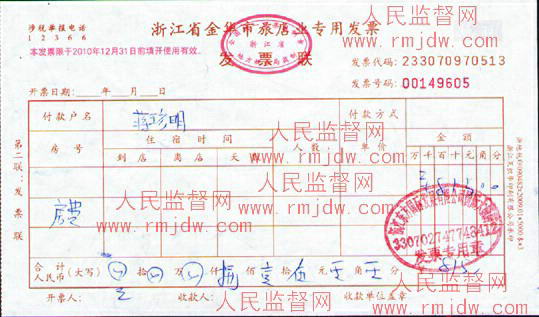 涉税举报电话
12366
浙江省金华市旅店业专用发票
本发票限于2010年12月31日前填开使用有效。
浙江省
发票联
发票代码: 233070970513
发票号码: 00149605
开票日期: 年 月 日
付款户名
付款方式
房号
住宿时间
到店 离店 天数
人数
单价
金额
万 千 百 十 元 角 分
房费
815
330702747748412
发票专用章
合计
人民币
(大写) 拾 万 仟 捌 佰 壹 拾 伍 元 角 分
开票人:
收款人:
收款单位盖章
第二联:发票联
人民监督网
www.rmjdw.com
人民监督网
www.rmjdw.com
人民监督网
www.rmjdw.com
人民监督网
www.rmjdw.com